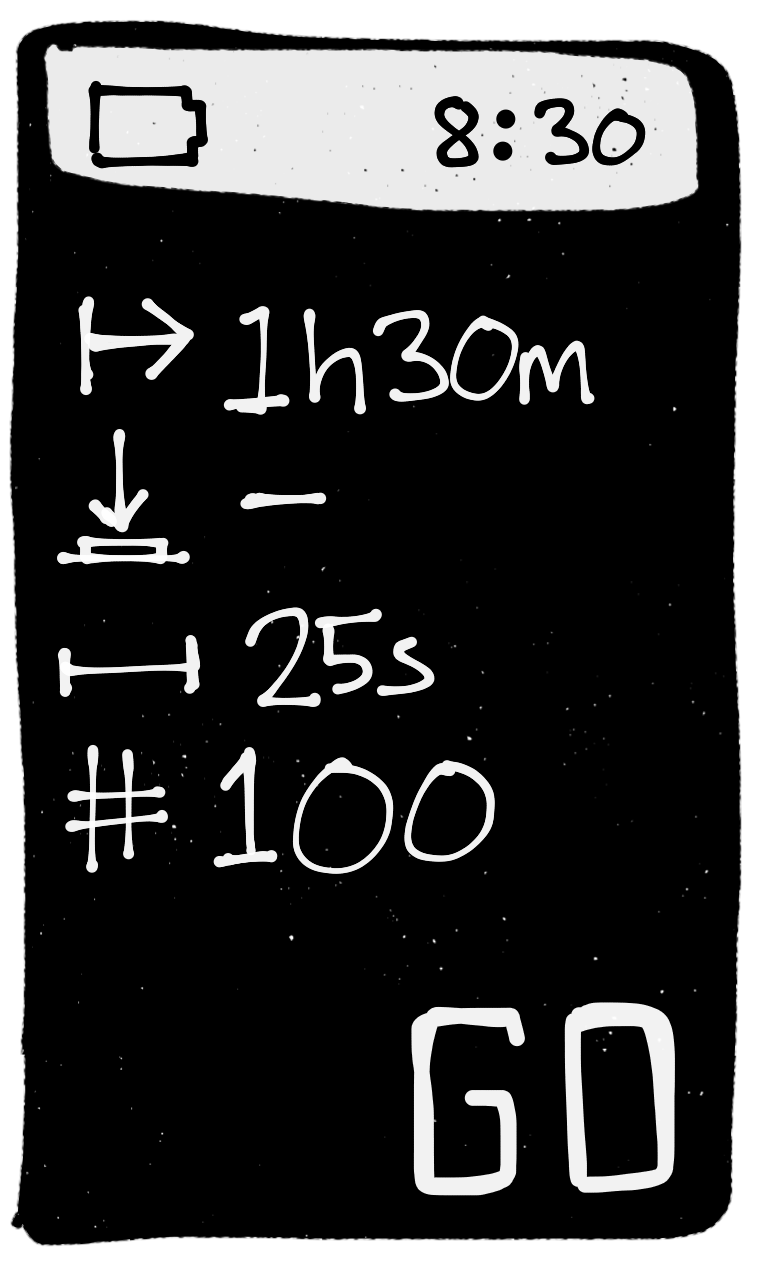 8:30
1h30m
–
25s
# 100
GO